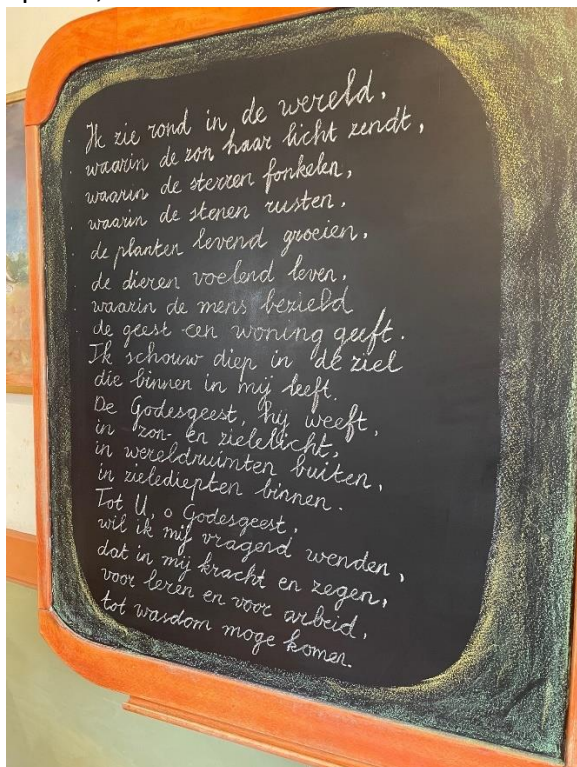 Ik zie rond in de wereld,
waarin de zon haar licht zendt,
waarin de sterren fonkelen,
waarin de stenen rusten,
de planten levend groeien,
de dieren voelend leven,
waarin de mens bezield
de geest een woning geeft.
Ik schouw diep in de ziel
die binnen in mij leeft.
De Godesgeest, hij weeft,
in zon- en zielelicht,
in wereldruimten buiten,
in zielediepten binnen.
Tot U, o Godesgeest,
wil ik mij vragend wenden,
dat in mij kracht en zegen,
voor leren en voor arbeid,
tot wasdom moge komen.